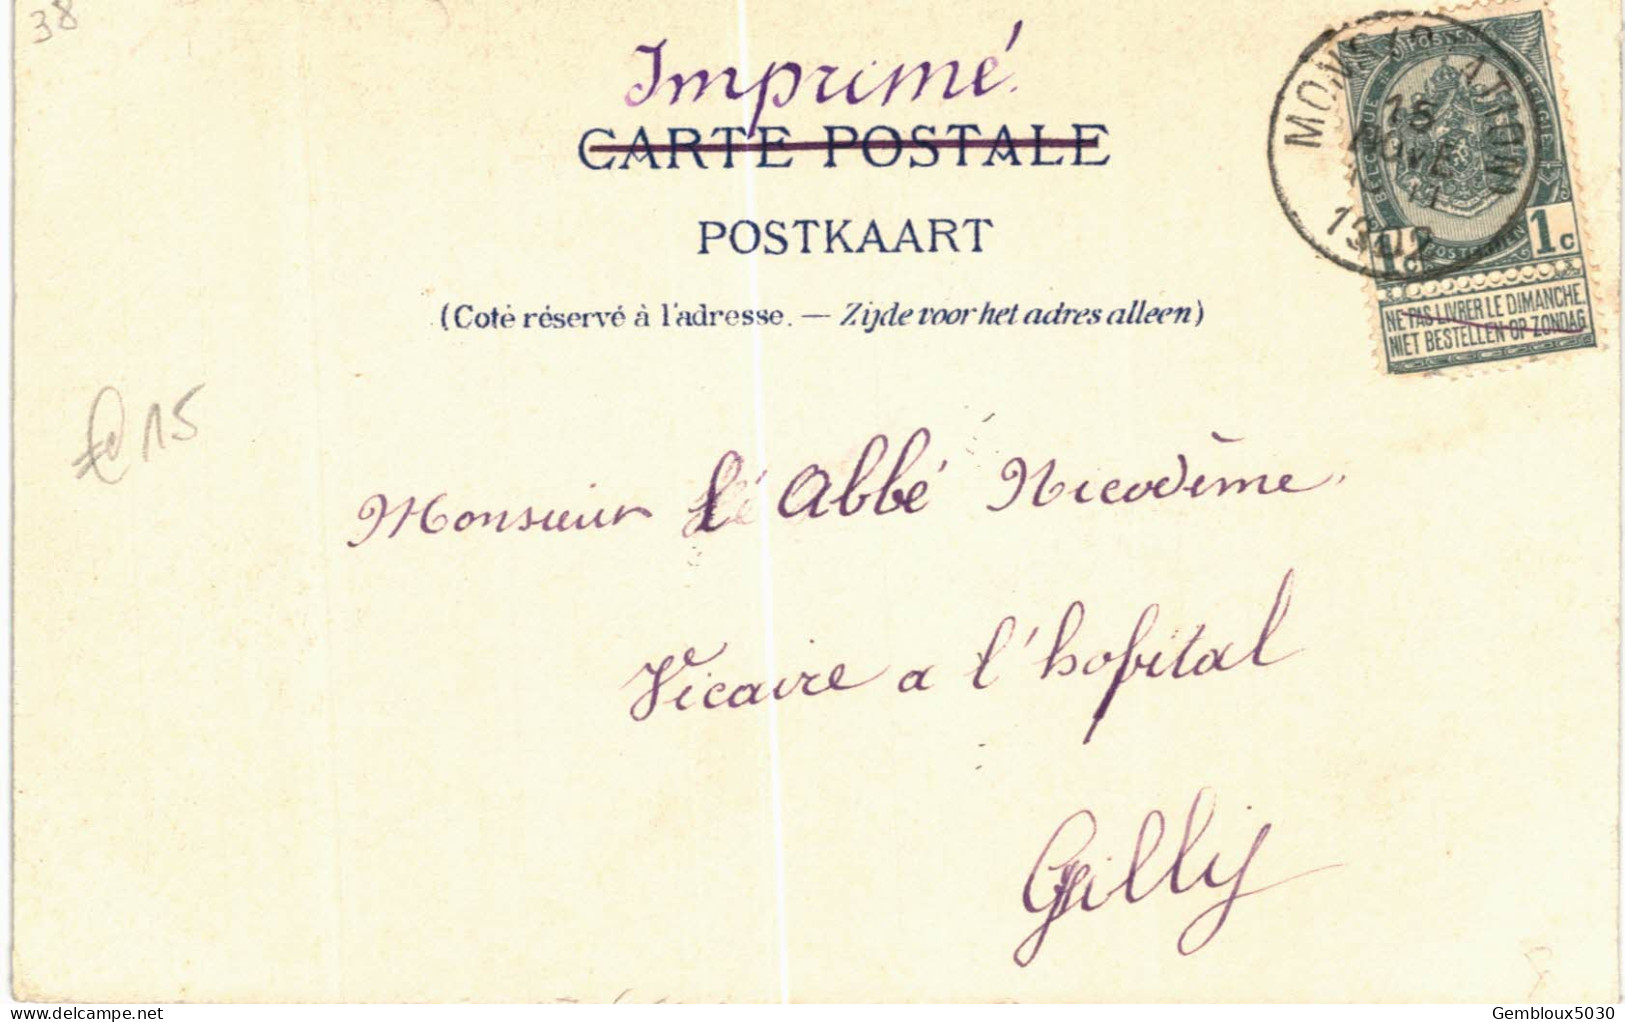 38
Imprimé.
CARTE POSTALE
POSTKAART
(Coté réservé à l'adresse. — Zijde voor het adres alleen)
MONS (STATION)
15
NOVE
1902
1c 1c
NE PAS LIVRER LE DIMANCHE.
NIET BESTELLEN OP ZONDAG
€ 15
Monsieur l'Abbé Nicodème.
Vicaire a l'hopital
Gilly
Gembloux5030